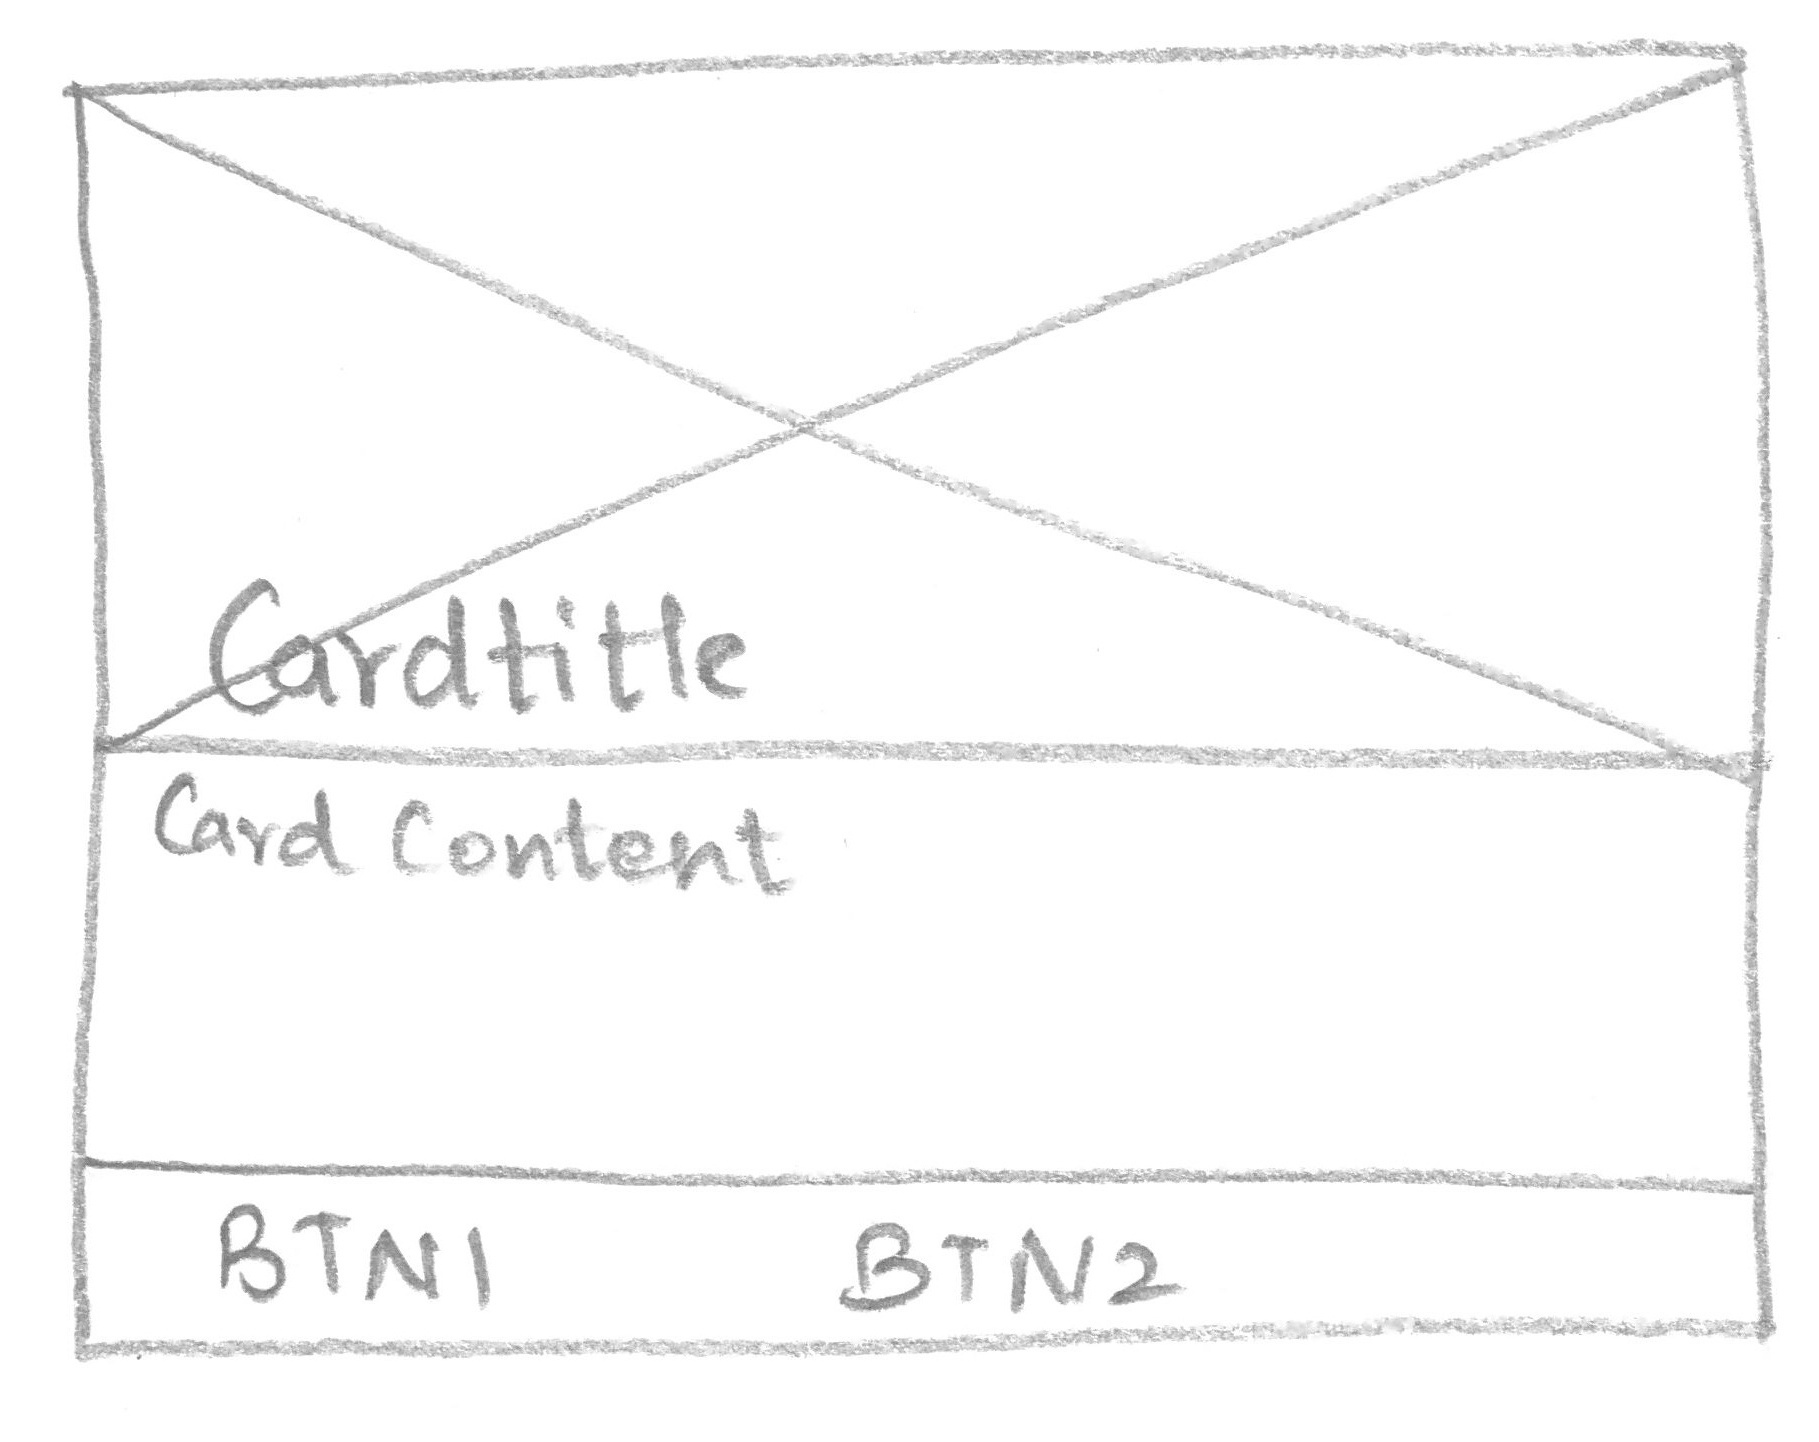 Cardtitle
Card Content
BTN1 BTN2